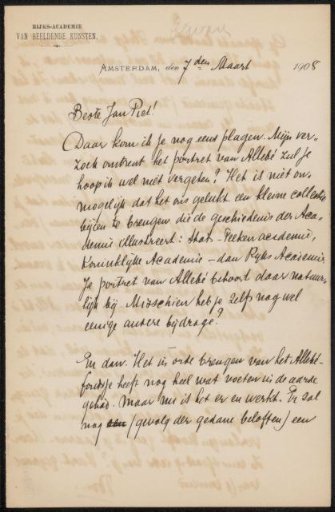 RIJKS-ACADEMIE
VAN BEELDENDE KUNSTEN.
AMSTERDAM, den 7den Maart 1908
Beste Jan Piet!
Daar kom ik je nog eens plagen. Mijn ver-
zoek omtrent het portret van Allebé zul je
hoop ik wel niet vergeten? Het is niet on-
mogelijk dat het ons gelukt een kleine collectie
bijeen te brengen die de geschiedenis der Aca-
demie illustreert: Stads-Teeken academie,
Koninklijke Academie – dan Rijks Academie.
Je portret van Allebé behoort daar natuur-
lijk bij. Misschien heb je zelfs nog wel
eenige andere bijdrage?
En dan. Het in orde brengen van het Allebé-
fondsje heeft nog heel wat voeten in de aarde
gehad. Maar nu is het er en werkt. Er zal
nog (gevolg der gedane beloften) een